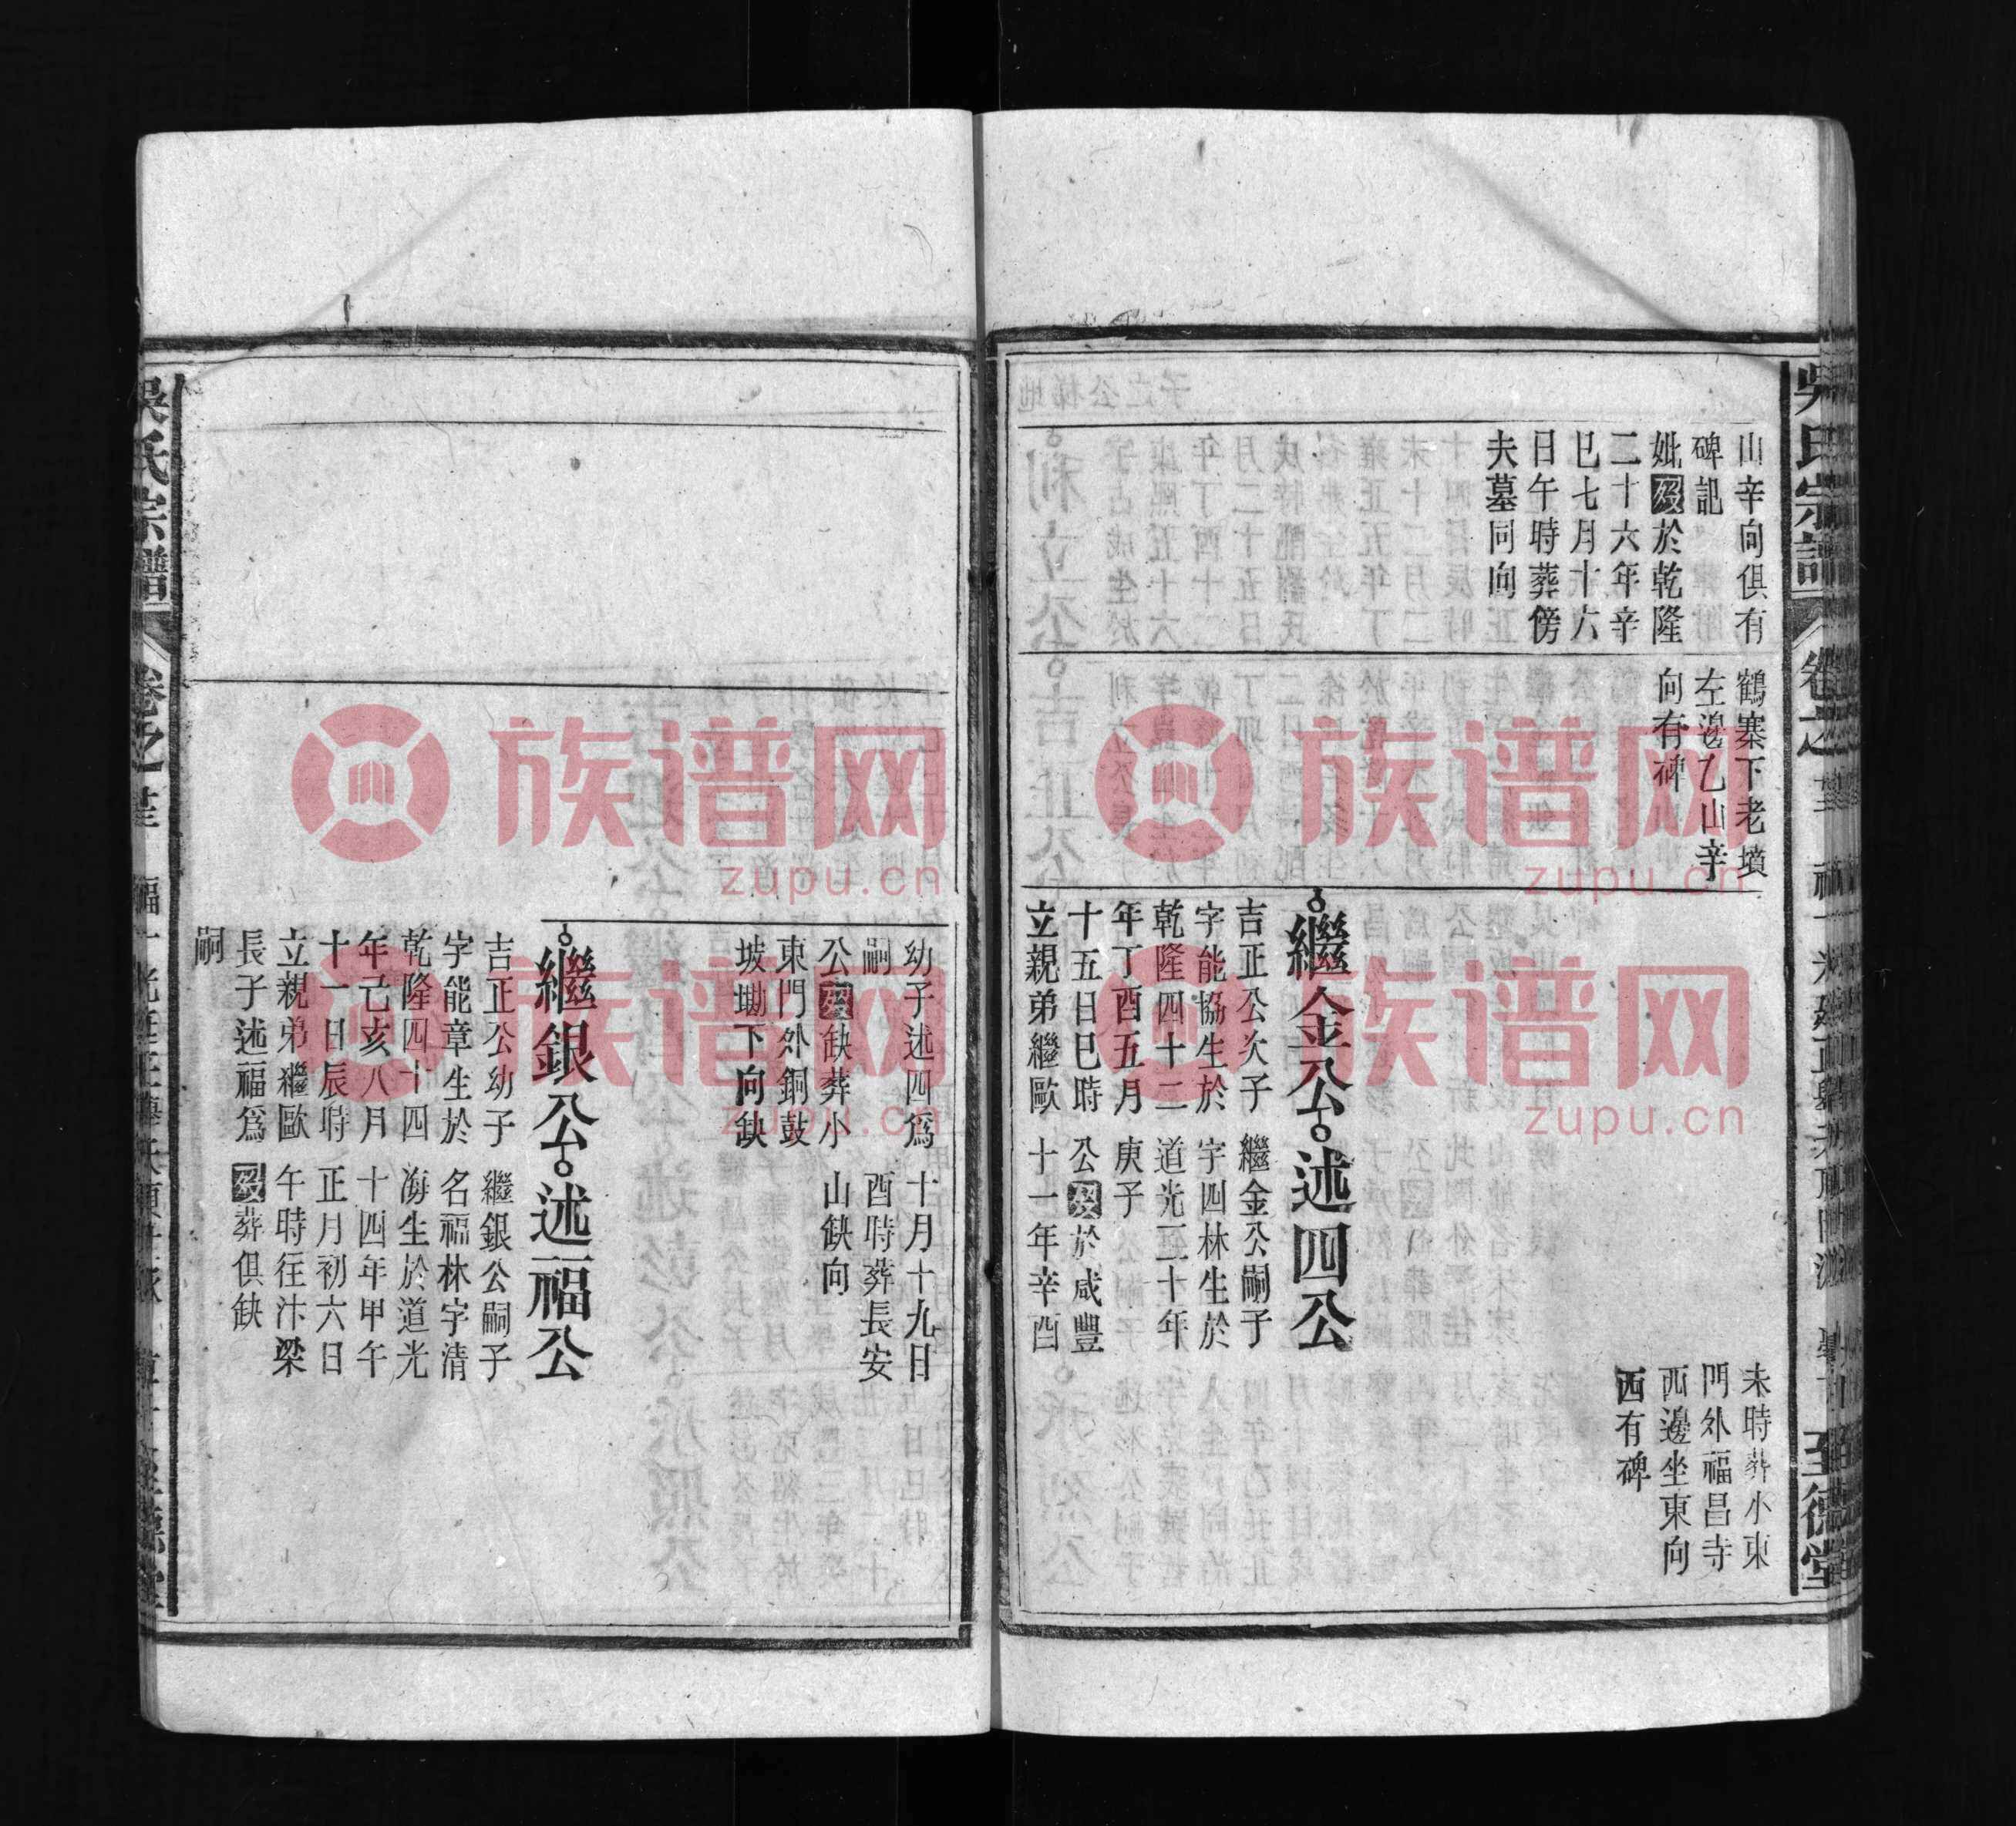 吳氏宗譜
卷之
至德堂
山辛向俱有
碑記
妣歿於乾隆
二十六年辛
巳七月十六
日午時葬傍
夫墓同向
鶴寨下老墳
左邊乙山辛
向有碑
繼金公
吉正公次子
字能協生於
乾隆四十二
年丁酉五月
十五日巳時
立親弟繼歐
述四公
繼金公嗣子
字四林生於
道光二十年
庚子
公歿於咸豐
十一年辛酉
未時葬小東
門外福昌寺
西邊坐東向
西有碑
幼子述四爲
嗣
公歿缺葬小
東門外銅鼓
坡墈下向缺
十月十九日
酉時葬長安
山缺向
繼銀公
吉正公幼子
字能章生於
乾隆四十四
年己亥八月
十一日辰時
立親弟繼歐
長子述福爲
嗣
述福公
繼銀公嗣子
名福林字清
海生於道光
十四年甲午
正月初六日
午時往汴梁
歿葬俱缺
吳氏宗譜
卷之
族谱网
zupu.cn
族谱网
zupu.cn
族谱网
zupu.cn
族谱网
zupu.cn